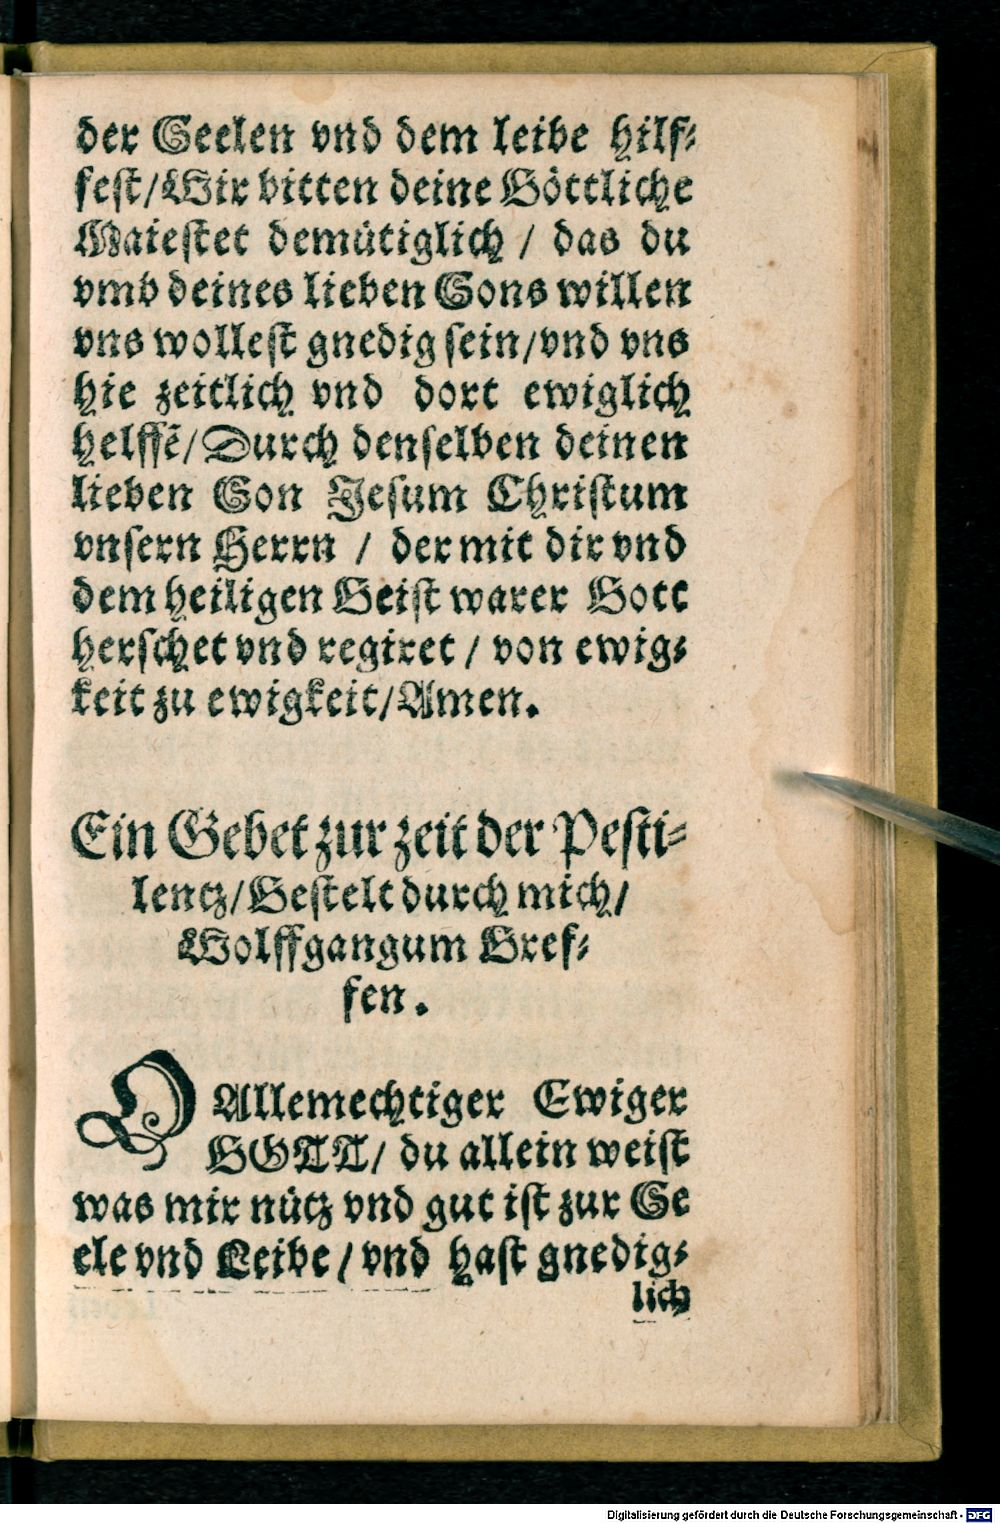 der Seelen vnd dem leibe hilf⸗
fest/Wir bitten deine Göttliche
Maiestet demütiglich / das du
vmb deines lieben Sons willen
vns wollest gnedig sein/vnd vns
hie zeitlich vnd dort ewiglich
helffē/Durch denselben deinen
lieben Son Jesum Christum
vnsern Herrn / der mit dir vnd
dem heiligen Geist warer Gott
herschet vnd regiret / von ewig⸗
keit zu ewigkeit/Amen.
Ein Gebet zur zeit der Pesti⸗
lentz/Gestelt durch mich/
Wolffgangum Gref⸗
fen.
O Allemechtiger Ewiger
GOTT/ du allein weist
was mir nütz vnd gut ist zur Se
ele vnd Leibe/vnd hast gnedig⸗
lich
Digitalisierung gefördert durch die Deutsche Forschungsgemeinschaft - DFG